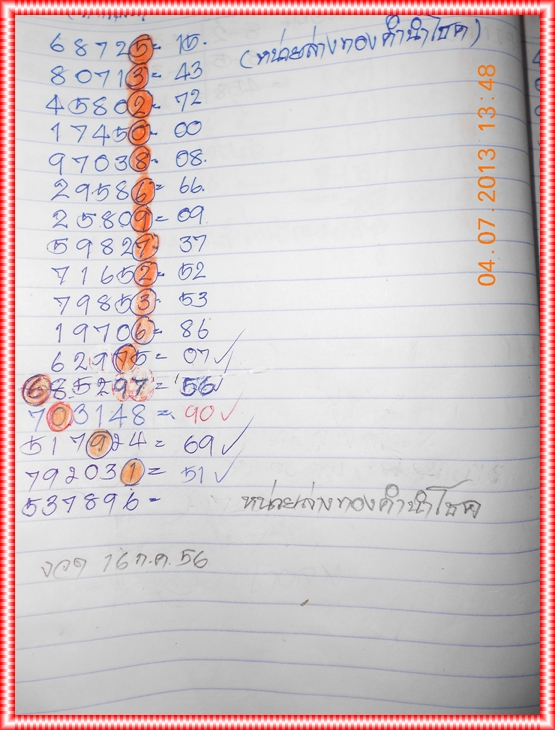 68725= 15.
(หน่วยล่างทองคำนำโชค)
80713= 43
45802= 72
17450= 00
97038= 08.
29586= 66.
25809= 09.
59827= 37
71652= 52
79853= 53
19706= 86
62975= 07✓
685297= 56✓
703148= 90✓
517924= 69✓
792031= 51✓
537896= หน่วยล่างทองคำนำโชค
งวด 16 ก.ค. 56
04.07.2013 13:48